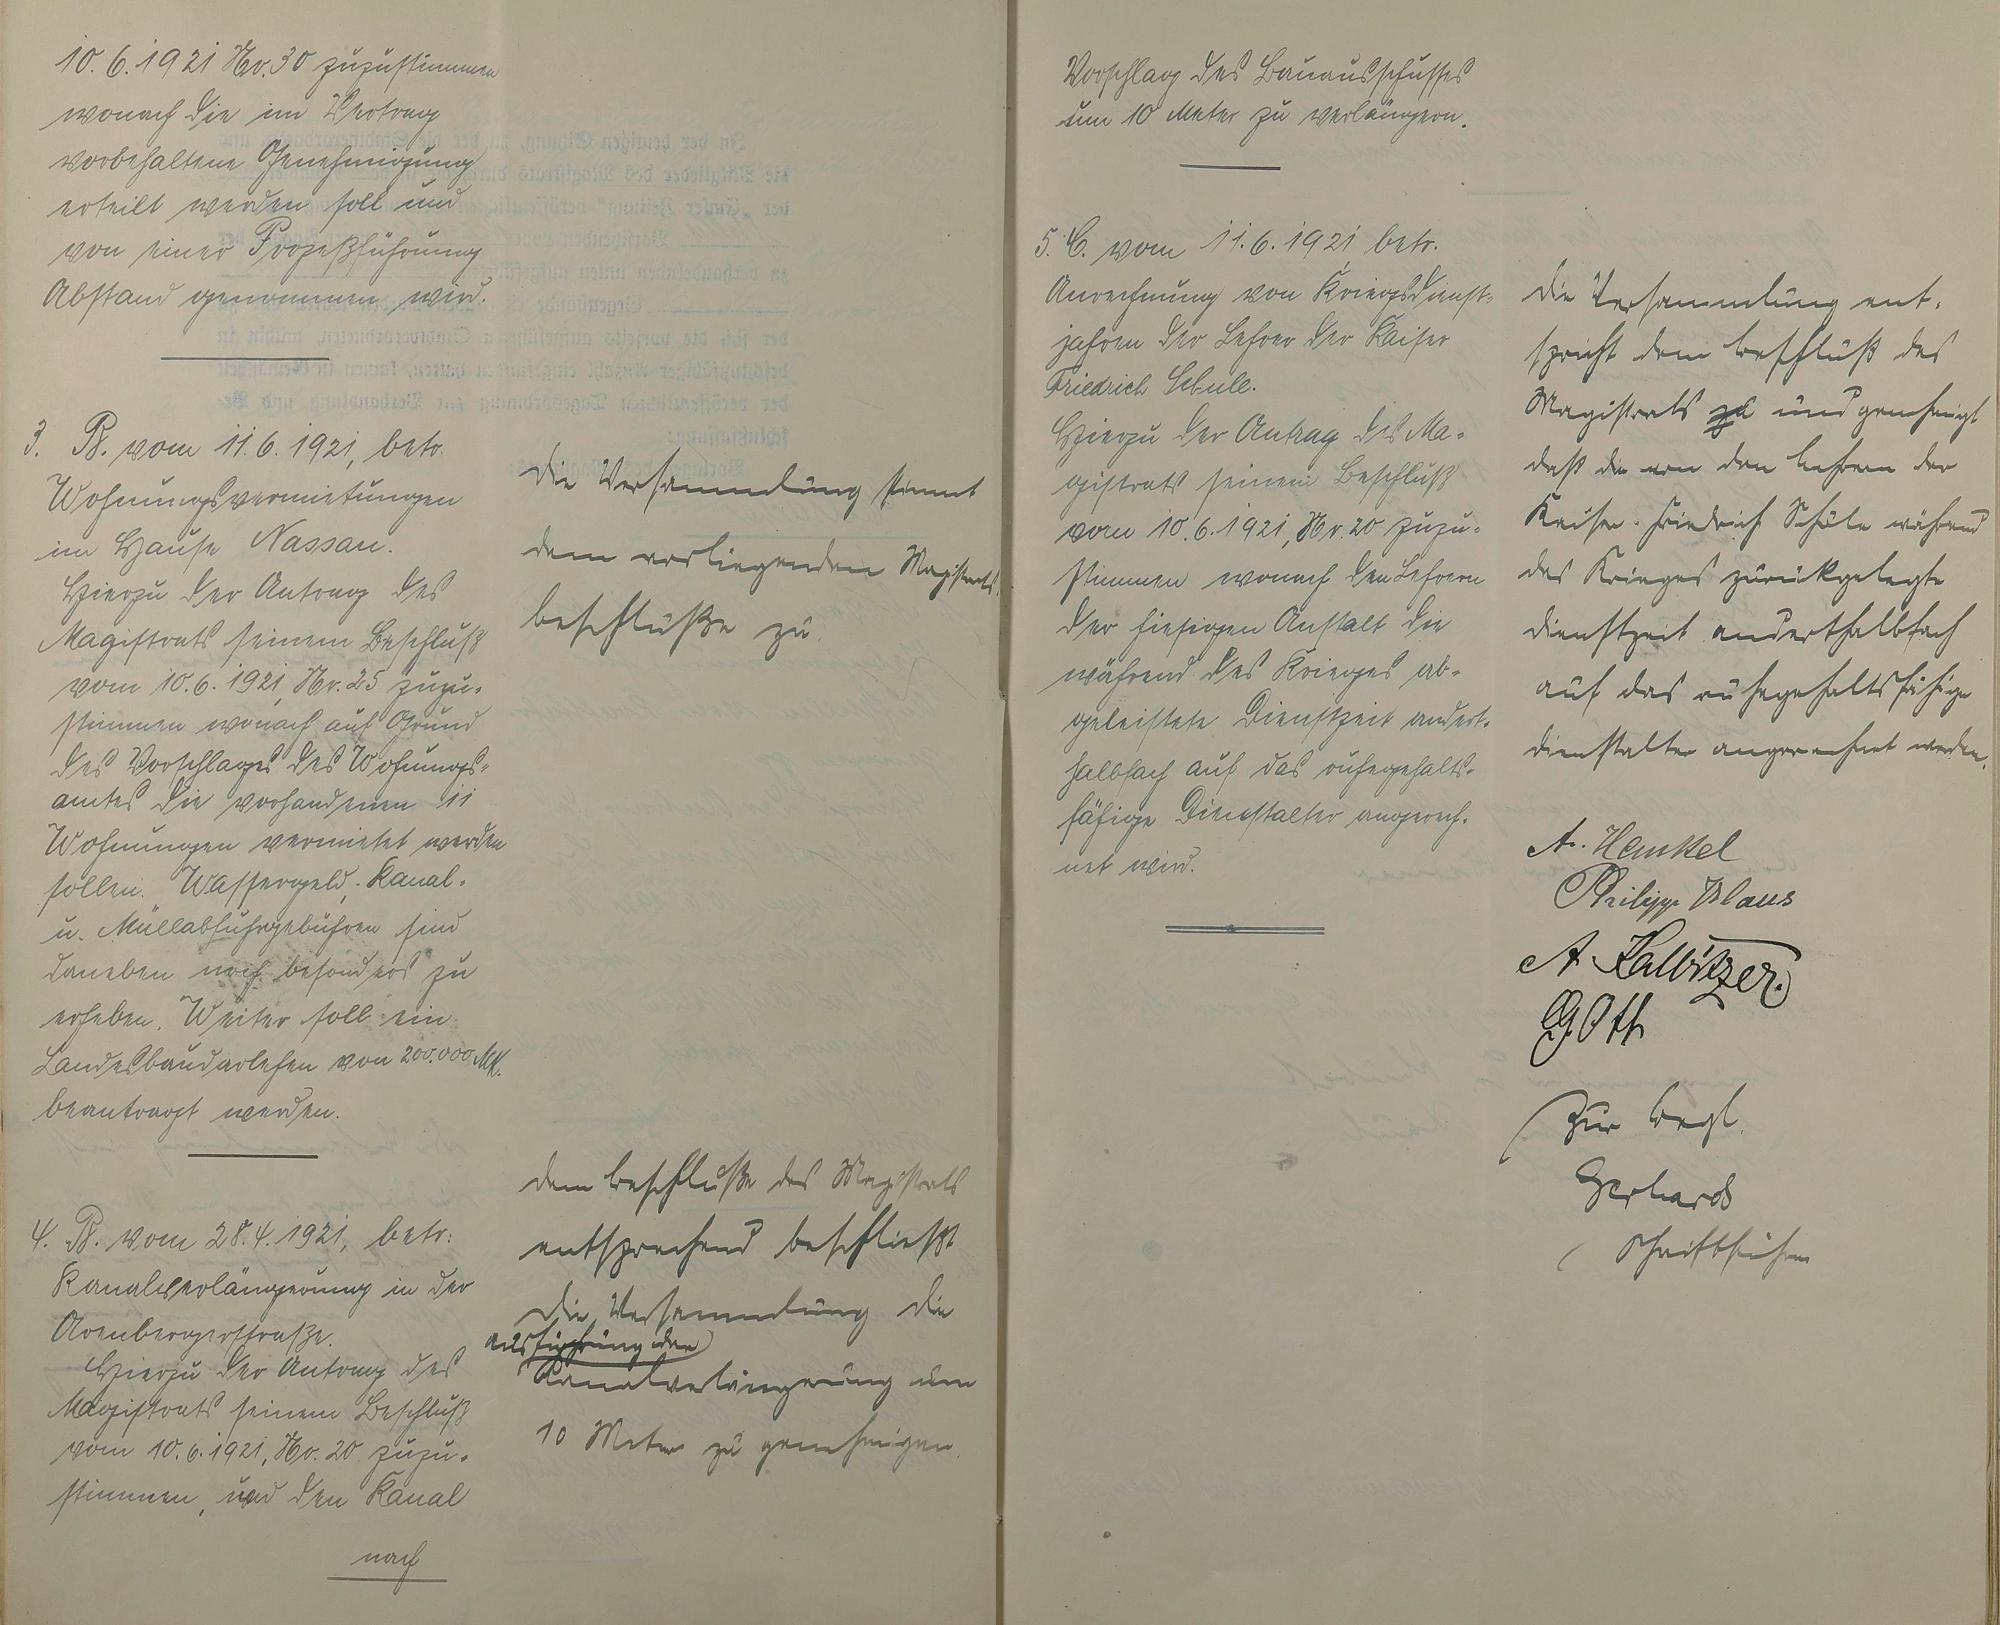 10.6.1921 Nr. 30 zuzustimmen
wonach die im Vertrag
vorbehaltene Genehmigung
erteilt werden soll und
von einer Prozeßführung
Abstand genommen wird.
3. B. vom 11.6.1921, betr.
Wohnungsvermietungen
im Hause Nassau.
Hierzu der Antrag des
Magistrats seinem Beschluß
vom 10.6.1921, Nr. 25 zuzu-
stimmen wonach auf Grund
des Vorschlages des Wohnungs-
amtes die vorhandenen 11
Wohnungen vermietet werden
sollen. Wassergeld, Kanal-
u. Müllabfuhrgebühren sind
daneben noch besonders zu
erheben. Weiter soll ein
Landesbaudarlehen von 200.000 Mk.
beantragt werden.
die Versammlung stimmt
dem vorliegenden Magistrats-
beschluße zu.
4. B. vom 28.4.1921, betr.
Kanalverlängerung in der
Arenbergerstraße.
Hierzu der Antrag des
Magistrats seinem Beschluß
vom 10.6.1921, Nr. 20 zuzu-
stimmen, und den Kanal
nach
dem Beschluße des Magistrats
entsprechend beschließt
die Versammlung die
Ausführung der
Kanalverlängerung um
10 Meter zu genehmigen.
Vorschlag des Bauausschusses
um 10 Meter zu verlängern.
5. C. vom 11.6.1921, betr.
Anrechnung von Kriegsdienst-
jahren der Lehrer der Kaiser
Friedrich Schule.
Hierzu der Antrag des Ma-
gistrats seinem Beschluß
vom 10.6.1921, Nr. 20 zuzu-
stimmen wonach den Lehrern
der hiesigen Anstalt die
während des Krieges ab-
geleistete Dienstzeit andert-
halbfach auf das ruhegehalts-
fähige Dienstalter angerech-
net wird.
die Versammlung ent-
spricht dem Beschluß des
Magistrats zu und genehmigt
daß die von den Lehrern der
Kaiser-Friedrich Schule während
des Krieges zurückgelegte
Dienstzeit anderthalbfach
auf das ruhegehaltsfähige
Dienstalter angerechnet werden.
A. Henkel
Philipp Klaus
A. Kalbitzer.
G Ott
Zur Begl.
Gerhards
Schriftführer